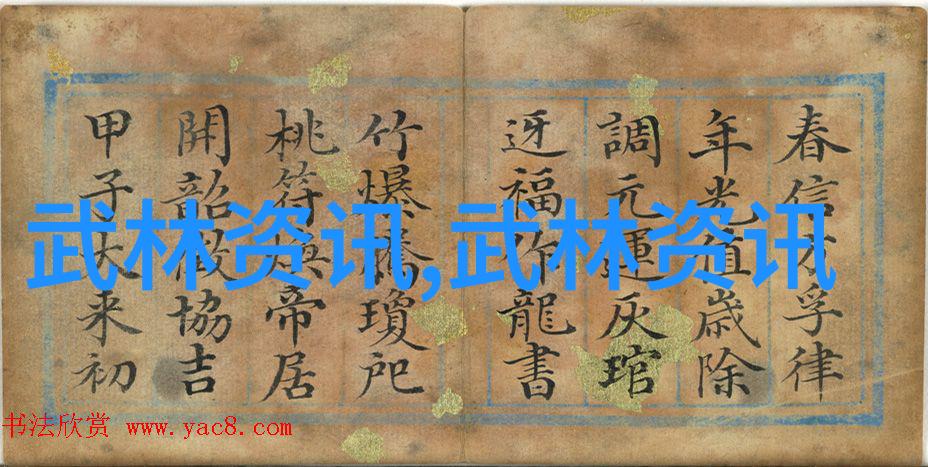 春信才孚律
年光值歲除
調元運灰琯
迓福作龍書
竹爆瓊
桃符煥帝居
開韶徵協吉
甲子大来初
武林资讯,武林资讯
书法欣赏 www.yac8.com